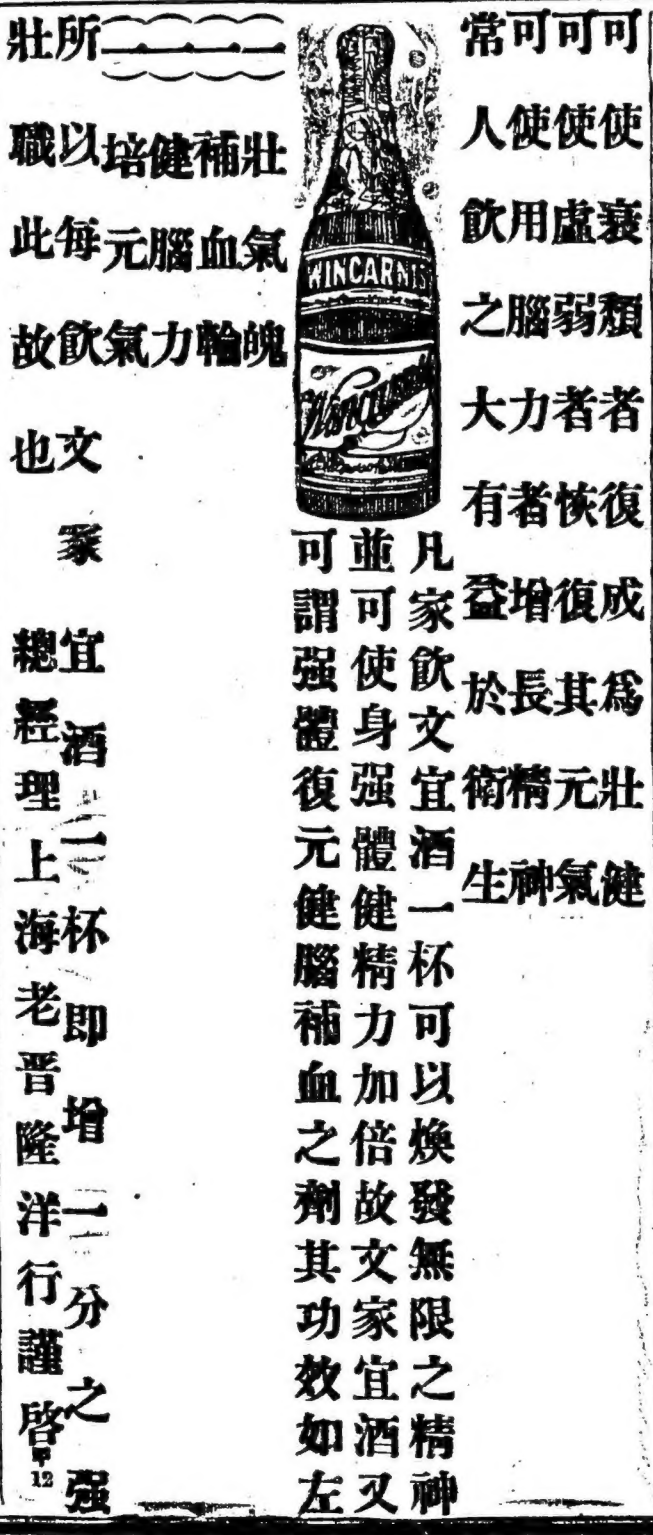 可使衰頹者復成爲壯健
可使虛弱者恢復其元氣
可使用腦力者增長精神
常人飲之大有益於衛生
WINCARNIS
Wincarnis
凡家飲文宜酒一杯可以煥發無限之精神
並可使身强體健精力加倍故文家宜酒又
可謂强體復元健腦補血之劑其功效如左
(一)壯氣魄
(一)補血輪
(一)健腦力
(一)培元氣
所以每飲文家宜酒一杯即增一分之强
壯職此故也
總經理上海老晋隆洋行謹啓
12